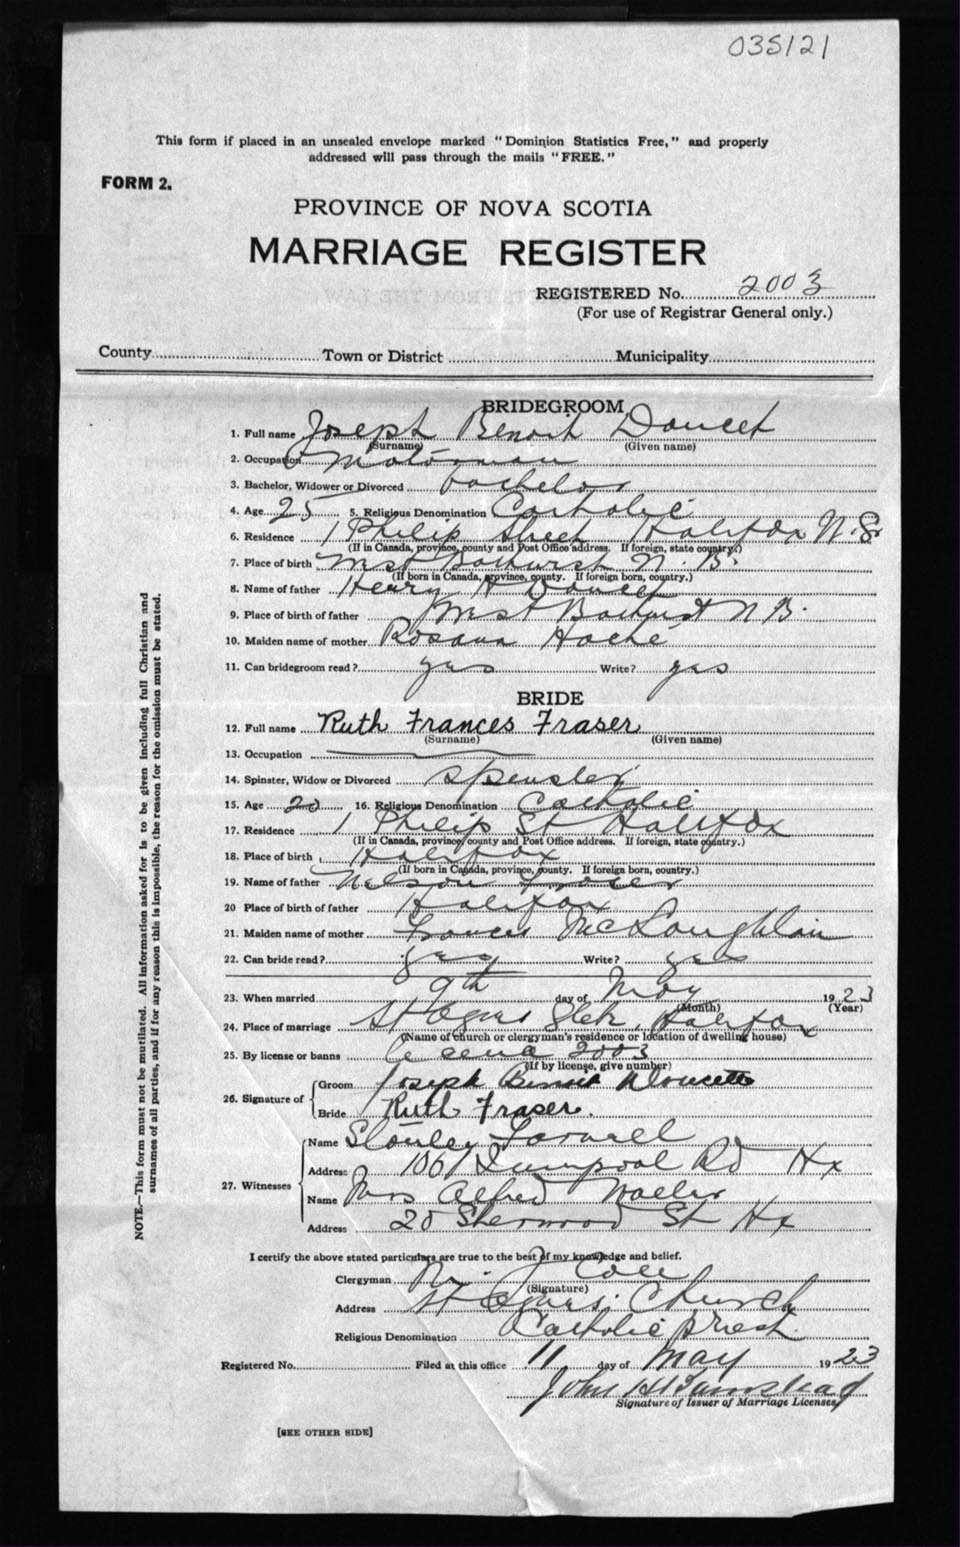 035121
This form if placed in an unsealed envelope marked "Dominion Statistics Free," and properly
addressed will pass through the mails "FREE."
FORM 2.
PROVINCE OF NOVA SCOTIA
MARRIAGE REGISTER
REGISTERED No. 2003
(For use of Registrar General only.)
County Town or District Municipality
BRIDEGROOM
1. Full name Joseph Benoit Doucet
(Surname) (Given name)
2. Occupation Motorman
3. Bachelor, Widower or Divorced bachelor
4. Age 25 5. Religious Denomination Catholic
6. Residence 1 Philip Street Halifax N.S.
(If in Canada, province, county and Post Office address. If foreign, state country.)
7. Place of birth Bathurst N.B.
(If born in Canada, province, county. If foreign born, country.)
8. Name of father Henry A Doucet
9. Place of birth of father Bathurst N B.
10. Maiden name of mother Rosanna Hache
11. Can bridegroom read? yes Write? yes
BRIDE
12. Full name Ruth Frances Fraser
(Surname) (Given name)
13. Occupation
14. Spinster, Widow or Divorced Spinster
15. Age 20 16. Religious Denomination Catholic
17. Residence 1 Philip St Halifax
(If in Canada, province, county and Post Office address. If foreign, state country.)
18. Place of birth Halifax
(If born in Canada, province, county. If foreign born, country.)
19. Name of father Nelson Fraser
20 Place of birth of father Halifax
21. Maiden name of mother Frances McLaughlain
22. Can bride read? yes Write? yes
23. When married 9th day of May 1923
(Month) (Year)
24. Place of marriage St Agnes Halifax
(Name of church or clergyman's residence or location of dwelling house)
25. By license or banns 2003
(If by license, give number)
26. Signature of Groom Joseph Benoit Doucette
Bride Ruth Fraser.
27. Witnesses Name Stanley Farrell
Address 106 Liverpool Rd Hx
Name Mrs Alfred
Address 20 Sherwood St Hx
I certify the above stated particulars are true to the best of my knowledge and belief.
Clergyman Cole
(Signature)
Address St Agnes Church
Religious Denomination Catholic priest
Registered No. Filed at this office 11 day of May 1923
John H
Signature of Issuer of Marriage Licenses
[SEE OTHER SIDE]
NOTE.—This form must not be mutilated. All information asked for is to be given including full Christian and
surnames of all parties, and if for any reason this is impossible, the reason for the omission must be stated.